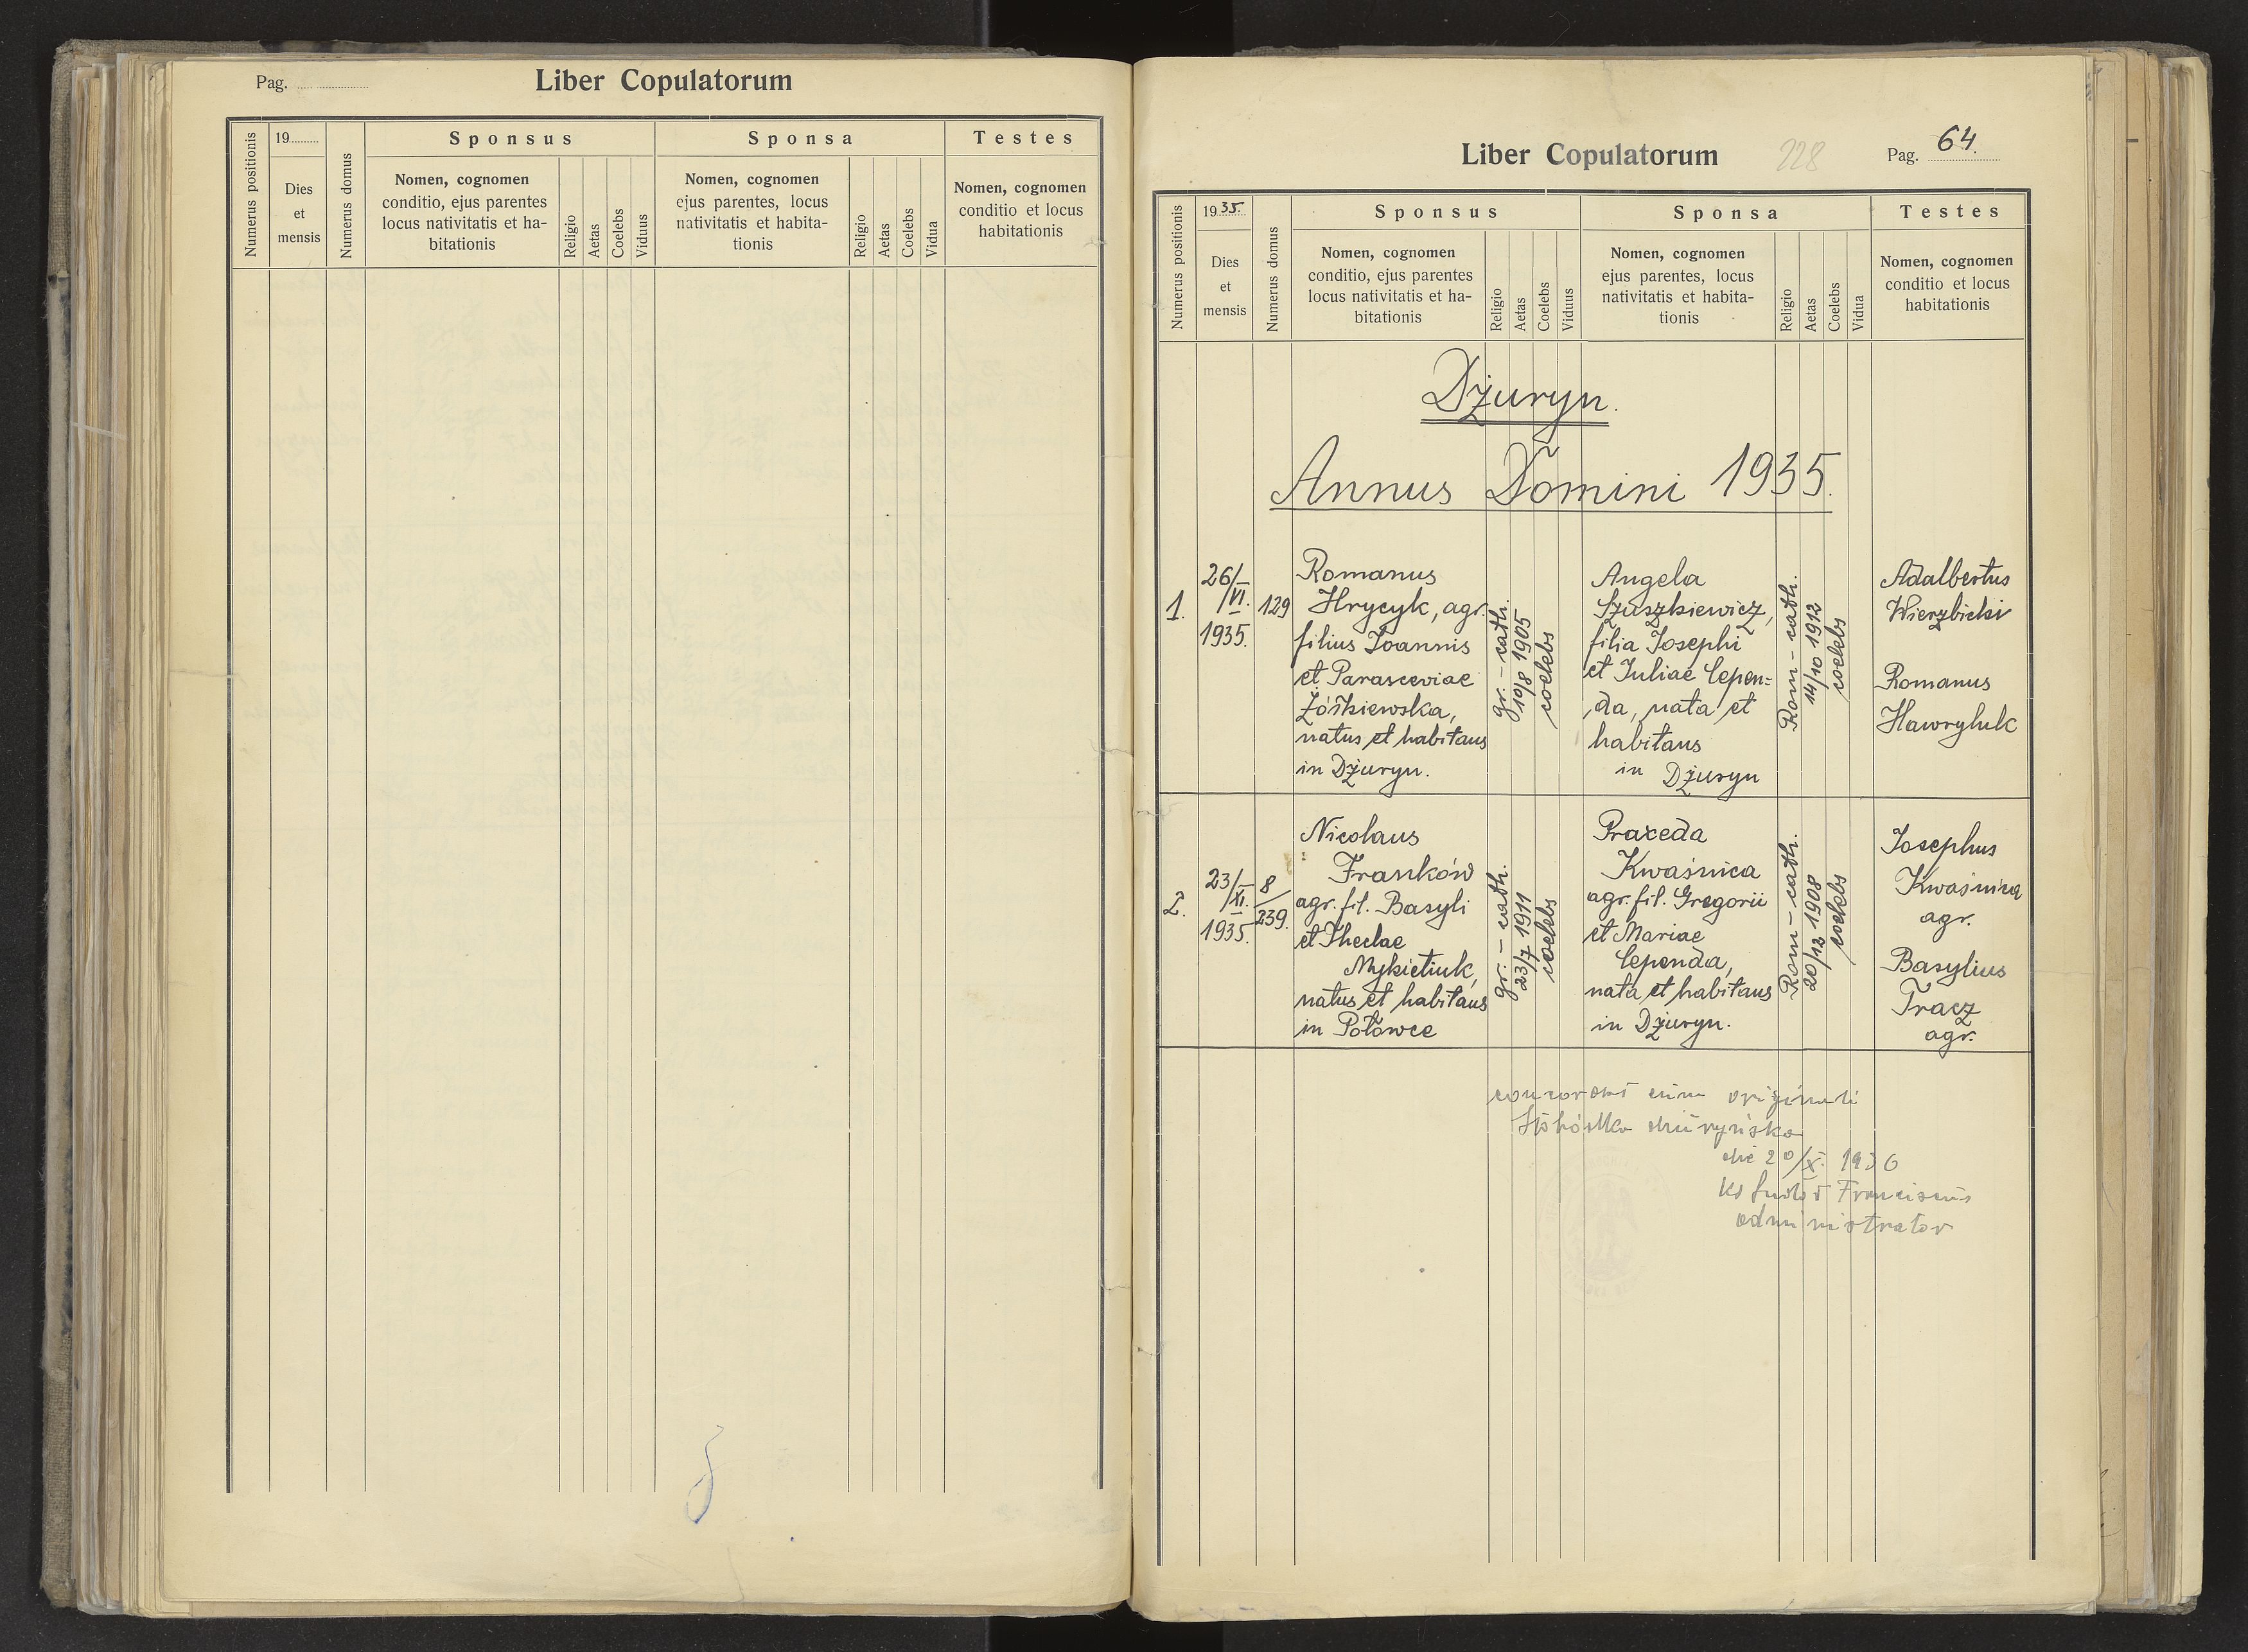 Pag.
Liber Copulatorum
Numerus positionis
19
Dies
et
mensis
Numerus domus
Sponsus
Nomen, cognomen
conditio, ejus parentes
locus nativitatis et ha-
bitationis
Religio
Aetas
Coelebs
Viduus
Sponsa
Nomen, cognomen
ejus parentes, locus
nativitatis et habita-
tionis
Religio
Aetas
Coelebs
Vidua
Testes
Nomen, cognomen
conditio et locus
habitationis
Liber Copulatorum
228
Pag. 64.
Numerus positionis
1935.
Dies
et
mensis
Numerus domus
Sponsus
Nomen, cognomen
conditio, ejus parentes
locus nativitatis et ha-
bitationis
Religio
Aetas
Coelebs
Viduus
Sponsa
Nomen, cognomen
ejus parentes, locus
nativitatis et habita-
tionis
Religio
Aetas
Coelebs
Vidua
Testes
Nomen, cognomen
conditio et locus
habitationis
Dżuryn.
Annus Domini 1935.
1.
26/VI.
1935.
129
Romanus
Hrycyk, agr.
filius Joannis
et Parasceviae
Żółkiewska,
natus et habitans
in Dżuryn.
gr.-cath.
10/8 1905
coelebs
Angela
Szuszkiewicz,
filia Josephi
et Juliae Cepen=
da, nata et
habitans
in Dżuryn
Rom-cath.
14/10 1912
coelebs
Adalbertus
Wierzbicki
Romanus
Hawryluk
2.
23/XI.
1935.
8/
239.
Nicolaus
Franków
agr. fil. Basyli
et Theclae
Mykietiuk,
natus et habitans
in Połowce
gr.-cath.
23/7 1911
coelebs
Praxeda
Kwaśnica
agr. fil. Gregorii
et Mariae
Cependa,
nata et habitans
in Dżuryn.
Rom-cath.
20/12 1908
coelebs
Josephus
Kwaśnica
agr.
Basylius
Tracz
agr.
concordat cum originali
die 20/X. 1936
Ks Franciscus
administrator